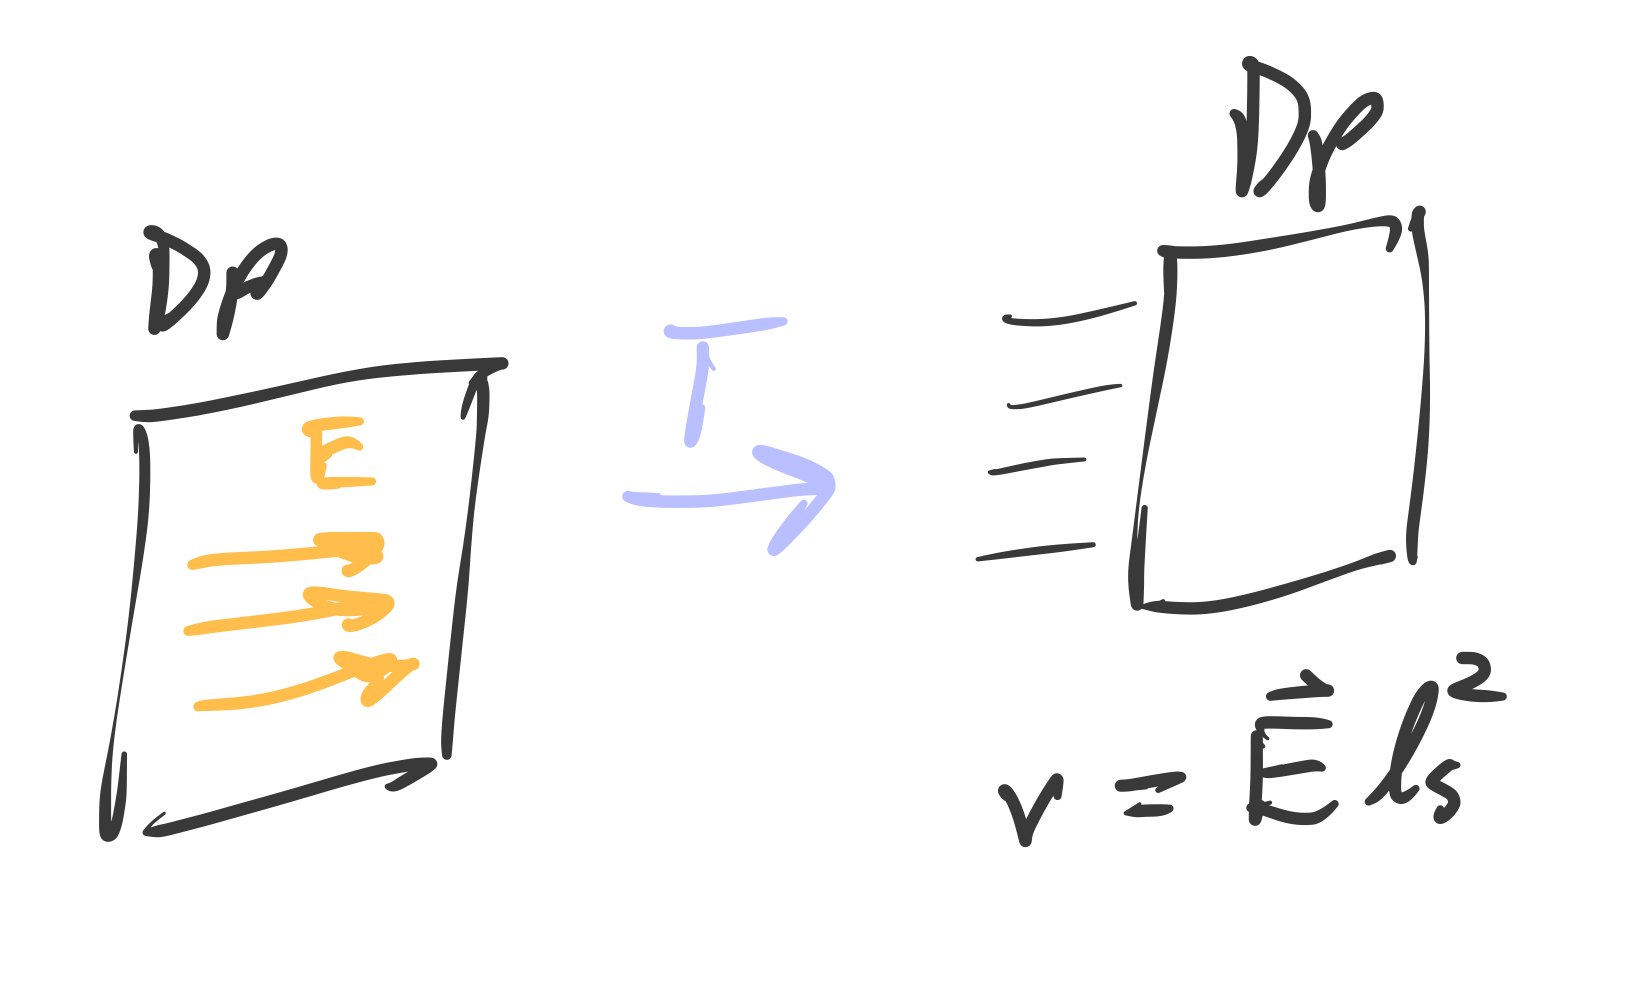 Dp
E
T
Dp
v = E⃗ ls²